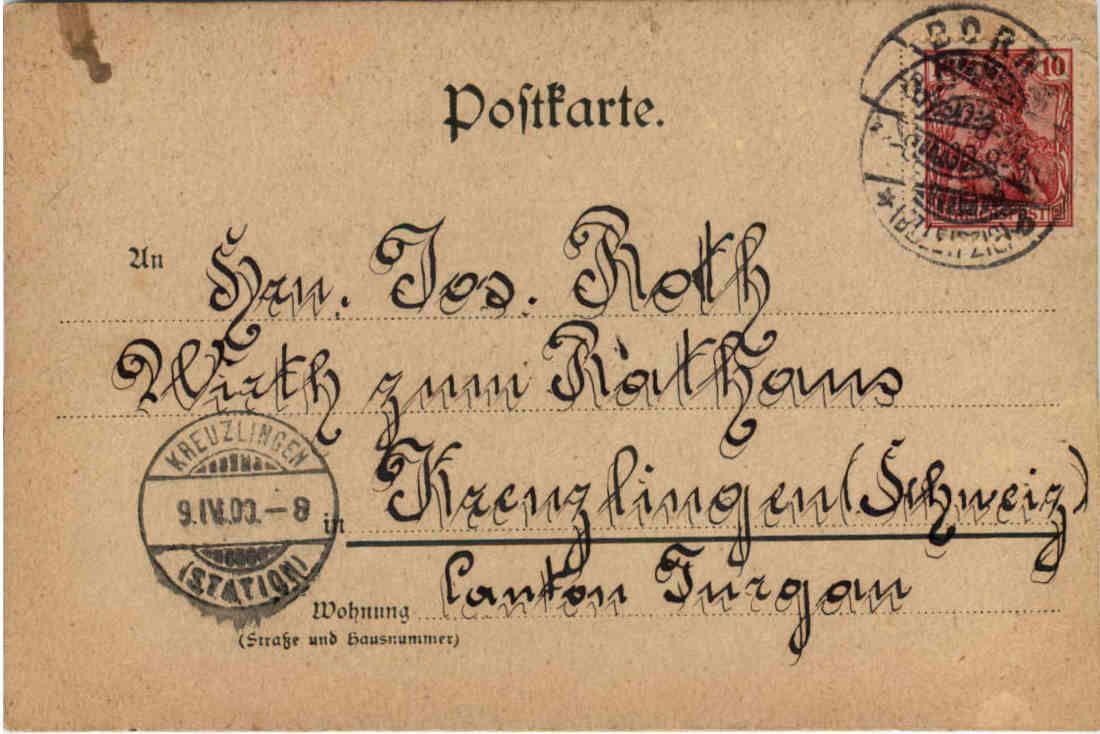 Postkarte.
10
BORNA
An Hrn. Jos. Roth
Wirth zum Rathaus
KREUZLINGEN
9.IV.00.-8
(STATION)
in Kreuzlingen (Schweiz)
Canton Turgau
Wohnung
(Straße und Hausnummer)